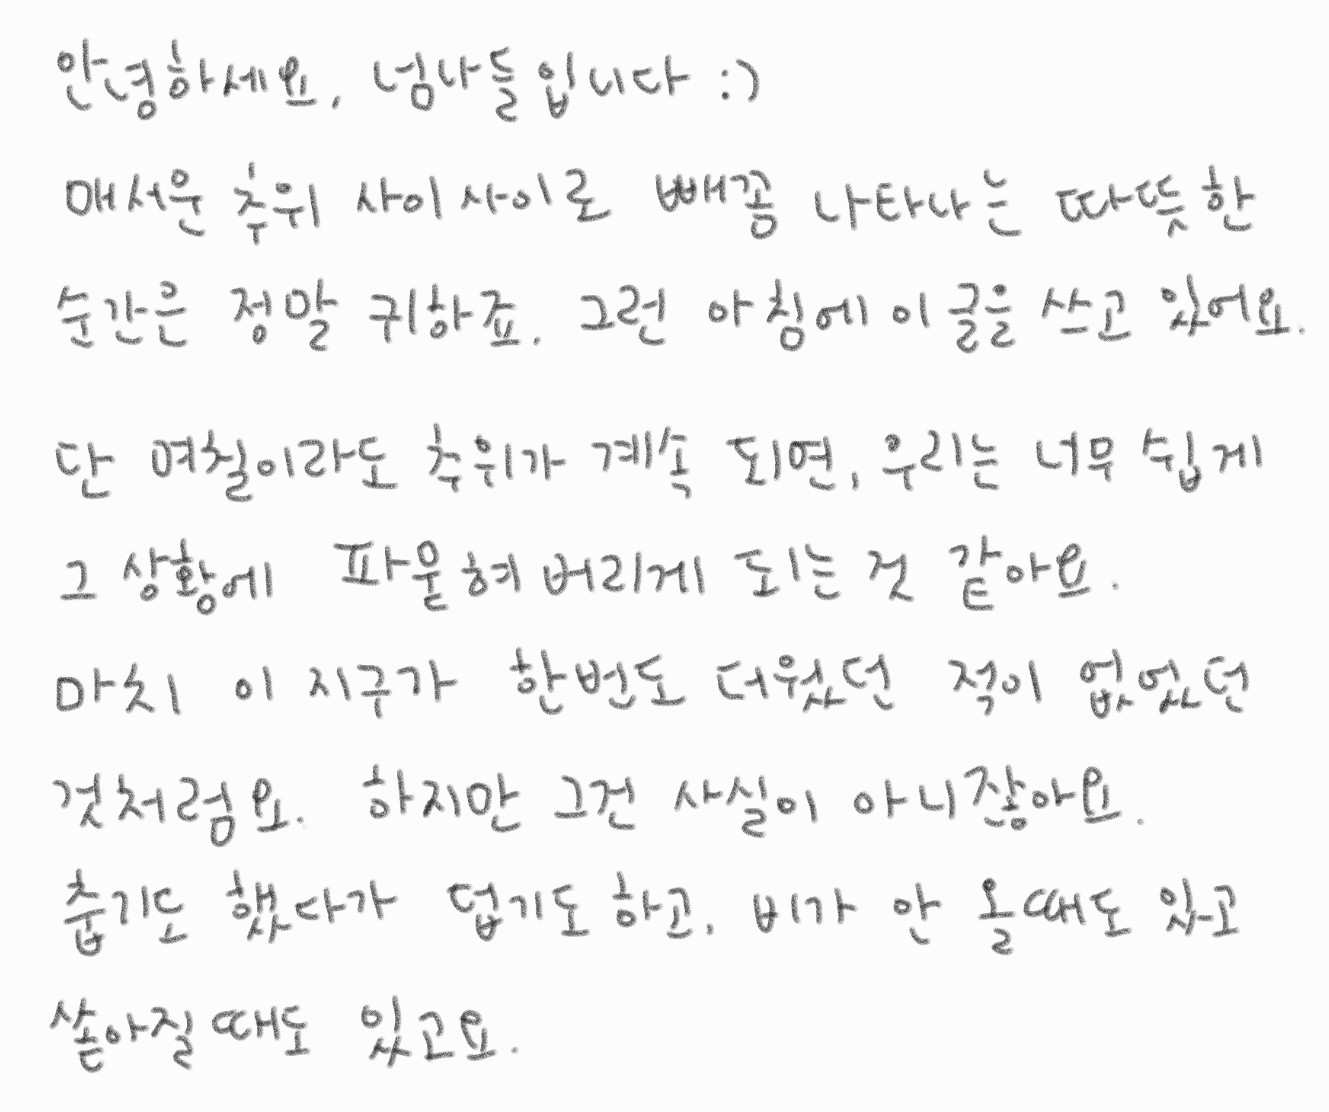 안녕하세요, 넘나들입니다 :)
매서운 추위 사이사이로 빼꼼 나타나는 따뜻한
순간은 정말 귀하죠. 그런 아침에 이 글을 쓰고 있어요.
단 며칠이라도 추위가 계속 되면, 우리는 너무 쉽게
그 상황에 파묻혀 버리게 되는 것 같아요.
마치 이 지구가 한번도 더웠던 적이 없었던
것처럼요. 하지만 그건 사실이 아니잖아요.
춥기도 했다가 덥기도 하고, 비가 안 올때도 있고
쏟아질 때도 있고요.